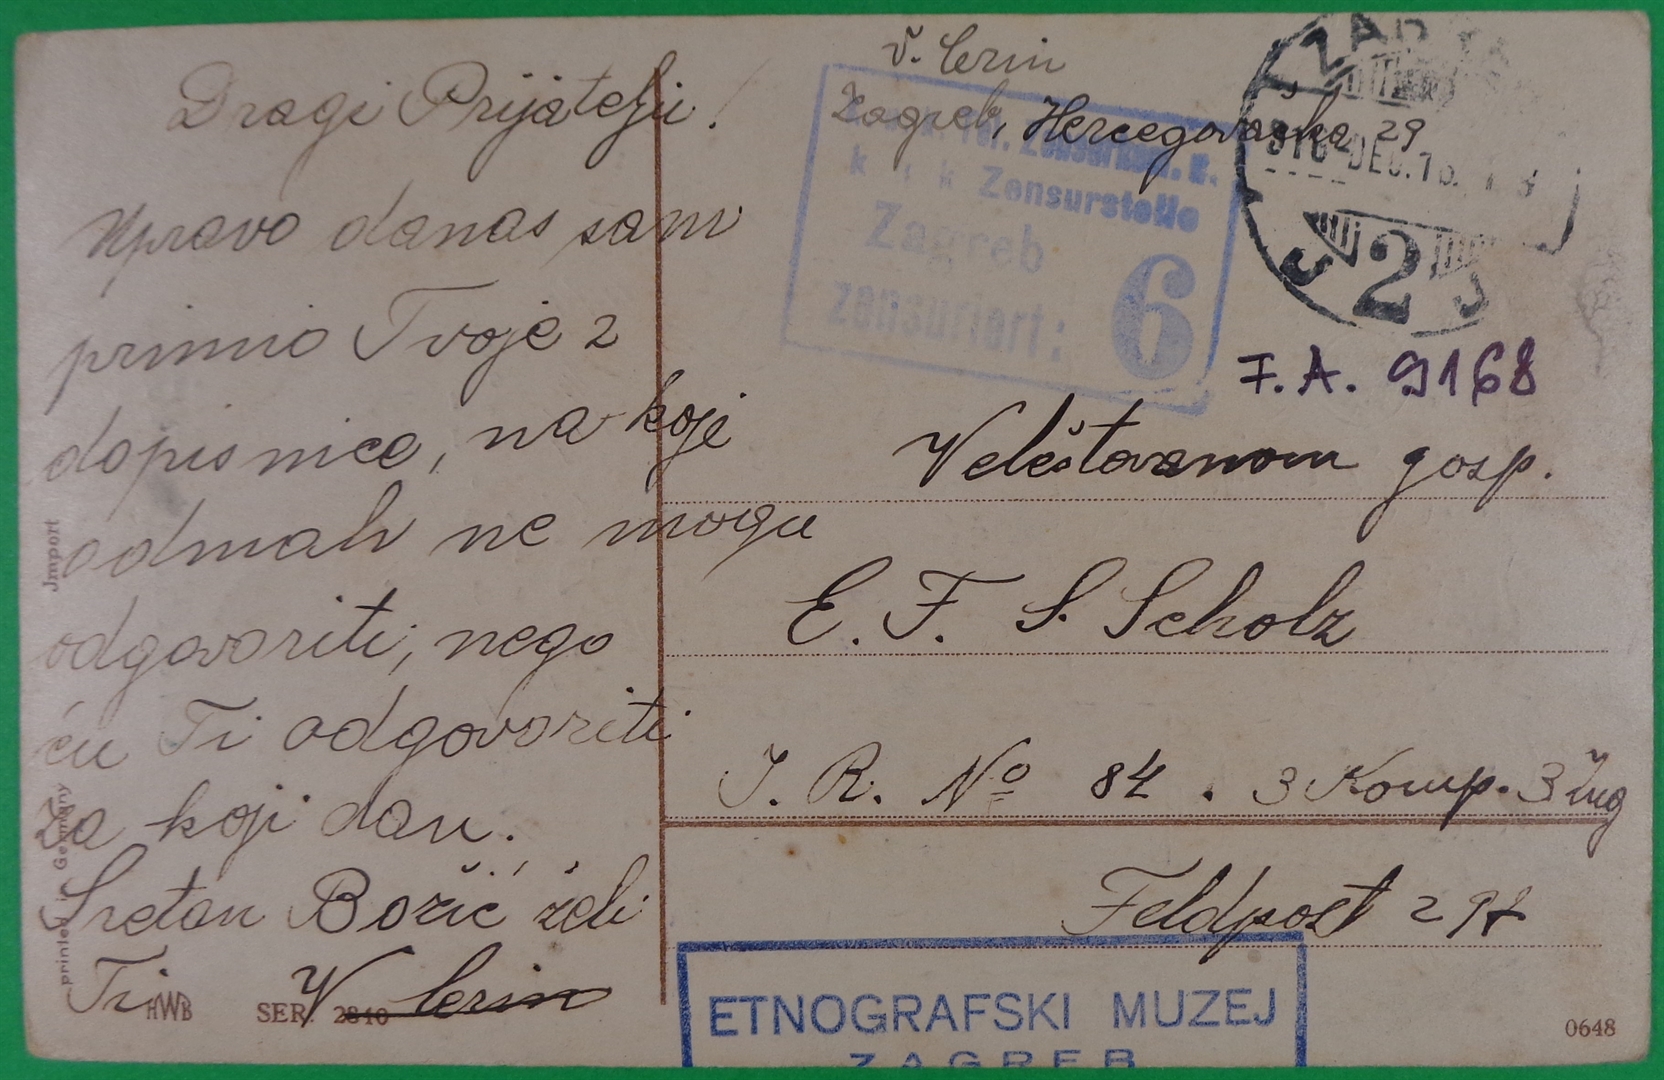 Dragi Prijatelju!
Upravo danas sam
primio Tvoje 2
dopisnice, na koje
odmah ne mogu
odgovoriti, nego
ću Ti odgovoriti
za koji dan.
Sretan Božić želi
Ti V Cerin
HWB SER. 2810
Import
printed in Germany
V. Cerin
Zagreb, Hercegovačka 29
k u k Zensurstelle
Zagreb
zensuriert: 6
ZAGR
916 DEC. 1
2
F. A. 9168
Veleštovanom gosp.
E. F. S. Scholz
I. R. No 84. 3 Komp. 3 Zug
Feldpost
ETNOGRAFSKI MUZEJ
ZAGREB
0648